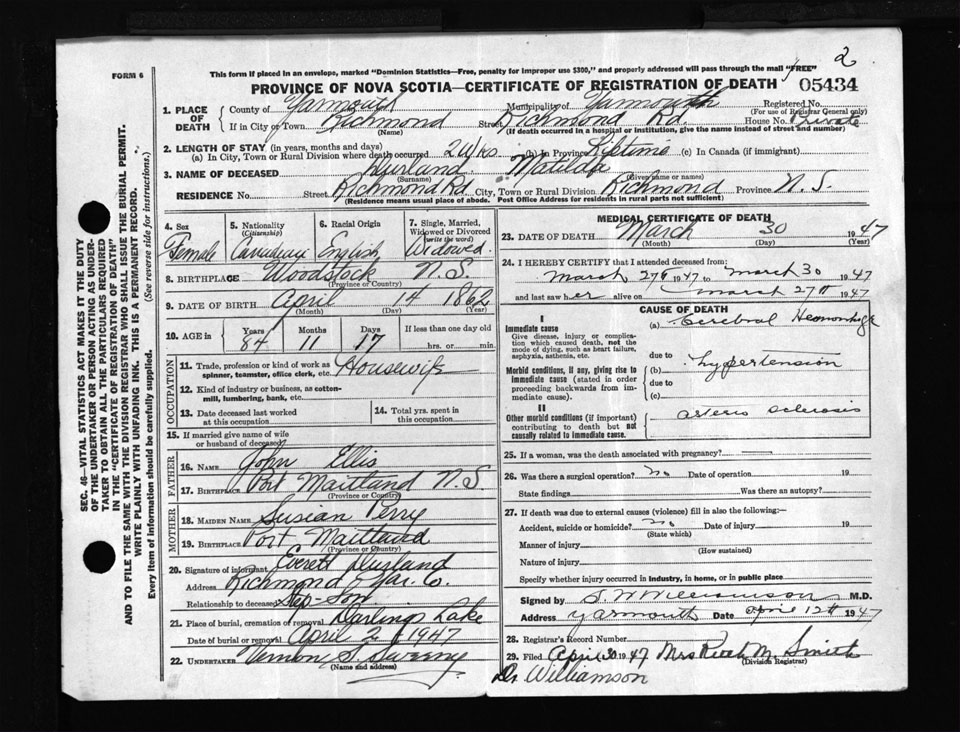 2
FORM 6
This form if placed in an envelope, marked "Dominion Statistics—Free, penalty for improper use $300," and properly addressed will pass through the mail "FREE"
PROVINCE OF NOVA SCOTIA—CERTIFICATE OF REGISTRATION OF DEATH 05434
1. PLACE OF DEATH
County of Yarmouth Municipality of Yarmouth Registered No.
(For use of Registrar General only)
If in City or Town Richmond Street Richmond Rd. House No. Private
(Name) (If death occurred in a hospital or institution, give the name instead of street and number)
2. LENGTH OF STAY (in years, months and days)
(a) In City, Town or Rural Division where death occurred 2 Wks (b) In Province Lifetime (c) In Canada (if immigrant)
3. NAME OF DECEASED Durland Matilda
(Surname) (Given name or names)
RESIDENCE No. Street Richmond Rd City, Town or Rural Division Richmond Province N.S.
(Residence means usual place of abode. Post Office Address for residents in rural parts not sufficient)
4. Sex Female
5. Nationality (Citizenship) Canadian
6. Racial Origin English
7. Single, Married, Widowed or Divorced (write the word) Widowed
8. BIRTHPLACE Woodstock N.S.
(Province or Country)
9. DATE OF BIRTH April 14 1862
(Month) (Day) (Year)
10. AGE in Years 84 Months 11 Days 17 If less than one day old hrs. or min.
OCCUPATION
11. Trade, profession or kind of work as spinner, teamster, office clerk, etc. Housewife
12. Kind of industry or business, as cotton-mill, lumbering, bank, etc.
13. Date deceased last worked at this occupation
14. Total yrs. spent in this occupation
15. If married give name of wife or husband of deceased
FATHER
16. NAME John Ellis
17. BIRTHPLACE Port Maitland N.S
(Province or Country)
MOTHER
18. MAIDEN NAME Susian Perry
19. BIRTHPLACE Port Maitland
(Province or Country)
20. Signature of informant Everett Durland
Address Richmond Yar. Co.
Relationship to deceased Step-Son
21. Place of burial, cremation or removal Darling Lake
Date of burial or removal April 2 1947
22. UNDERTAKER Vernon S. Sweeny
(Name and address)
MEDICAL CERTIFICATE OF DEATH
23. DATE OF DEATH March 30 1947
(Month) (Day) (Year)
24. I HEREBY CERTIFY that I attended deceased from:
March 27 1947 to March 30 1947
and last saw her alive on March 27th 1947
CAUSE OF DEATH
I
Immediate cause
Give disease, injury or complication which caused death, not the mode of dying, such as heart failure, asphyxia, asthenia, etc.
(a) Cerebral Hemorrhage
due to
Morbid conditions, if any, giving rise to immediate cause (stated in order proceeding backwards from immediate cause).
(b) hypertension
due to
(c)
II
Other morbid conditions (if important) contributing to death but not causally related to immediate cause.
arterio sclerosis
25. If a woman, was the death associated with pregnancy?
26. Was there a surgical operation? no Date of operation 19
State findings Was there an autopsy?
27. If death was due to external causes (violence) fill in also the following:—
Accident, suicide or homicide? no Date of injury 19
(State which)
Manner of injury
(How sustained)
Nature of injury
Specify whether injury occurred in industry, in home, or in public place
Signed by S W Williamson M.D.
Address Yarmouth Date April 12th 1947
28. Registrar's Record Number
29. Filed April 30 1947 Mrs Smith
(Division Registrar)
Dr Williamson
SEC. 46—VITAL STATISTICS ACT MAKES IT THE DUTY
OF THE UNDERTAKER OR PERSON ACTING AS UNDER-
TAKER TO OBTAIN ALL THE PARTICULARS REQUIRED
IN THE "CERTIFICATE OF REGISTRATION OF DEATH"
AND TO FILE THE SAME WITH THE DIVISION REGISTRAR WHO SHALL ISSUE THE BURIAL PERMIT.
WRITE PLAINLY WITH UNFADING INK. THIS IS A PERMANENT RECORD.
Every item of information should be carefully supplied. (See reverse side for instructions.)